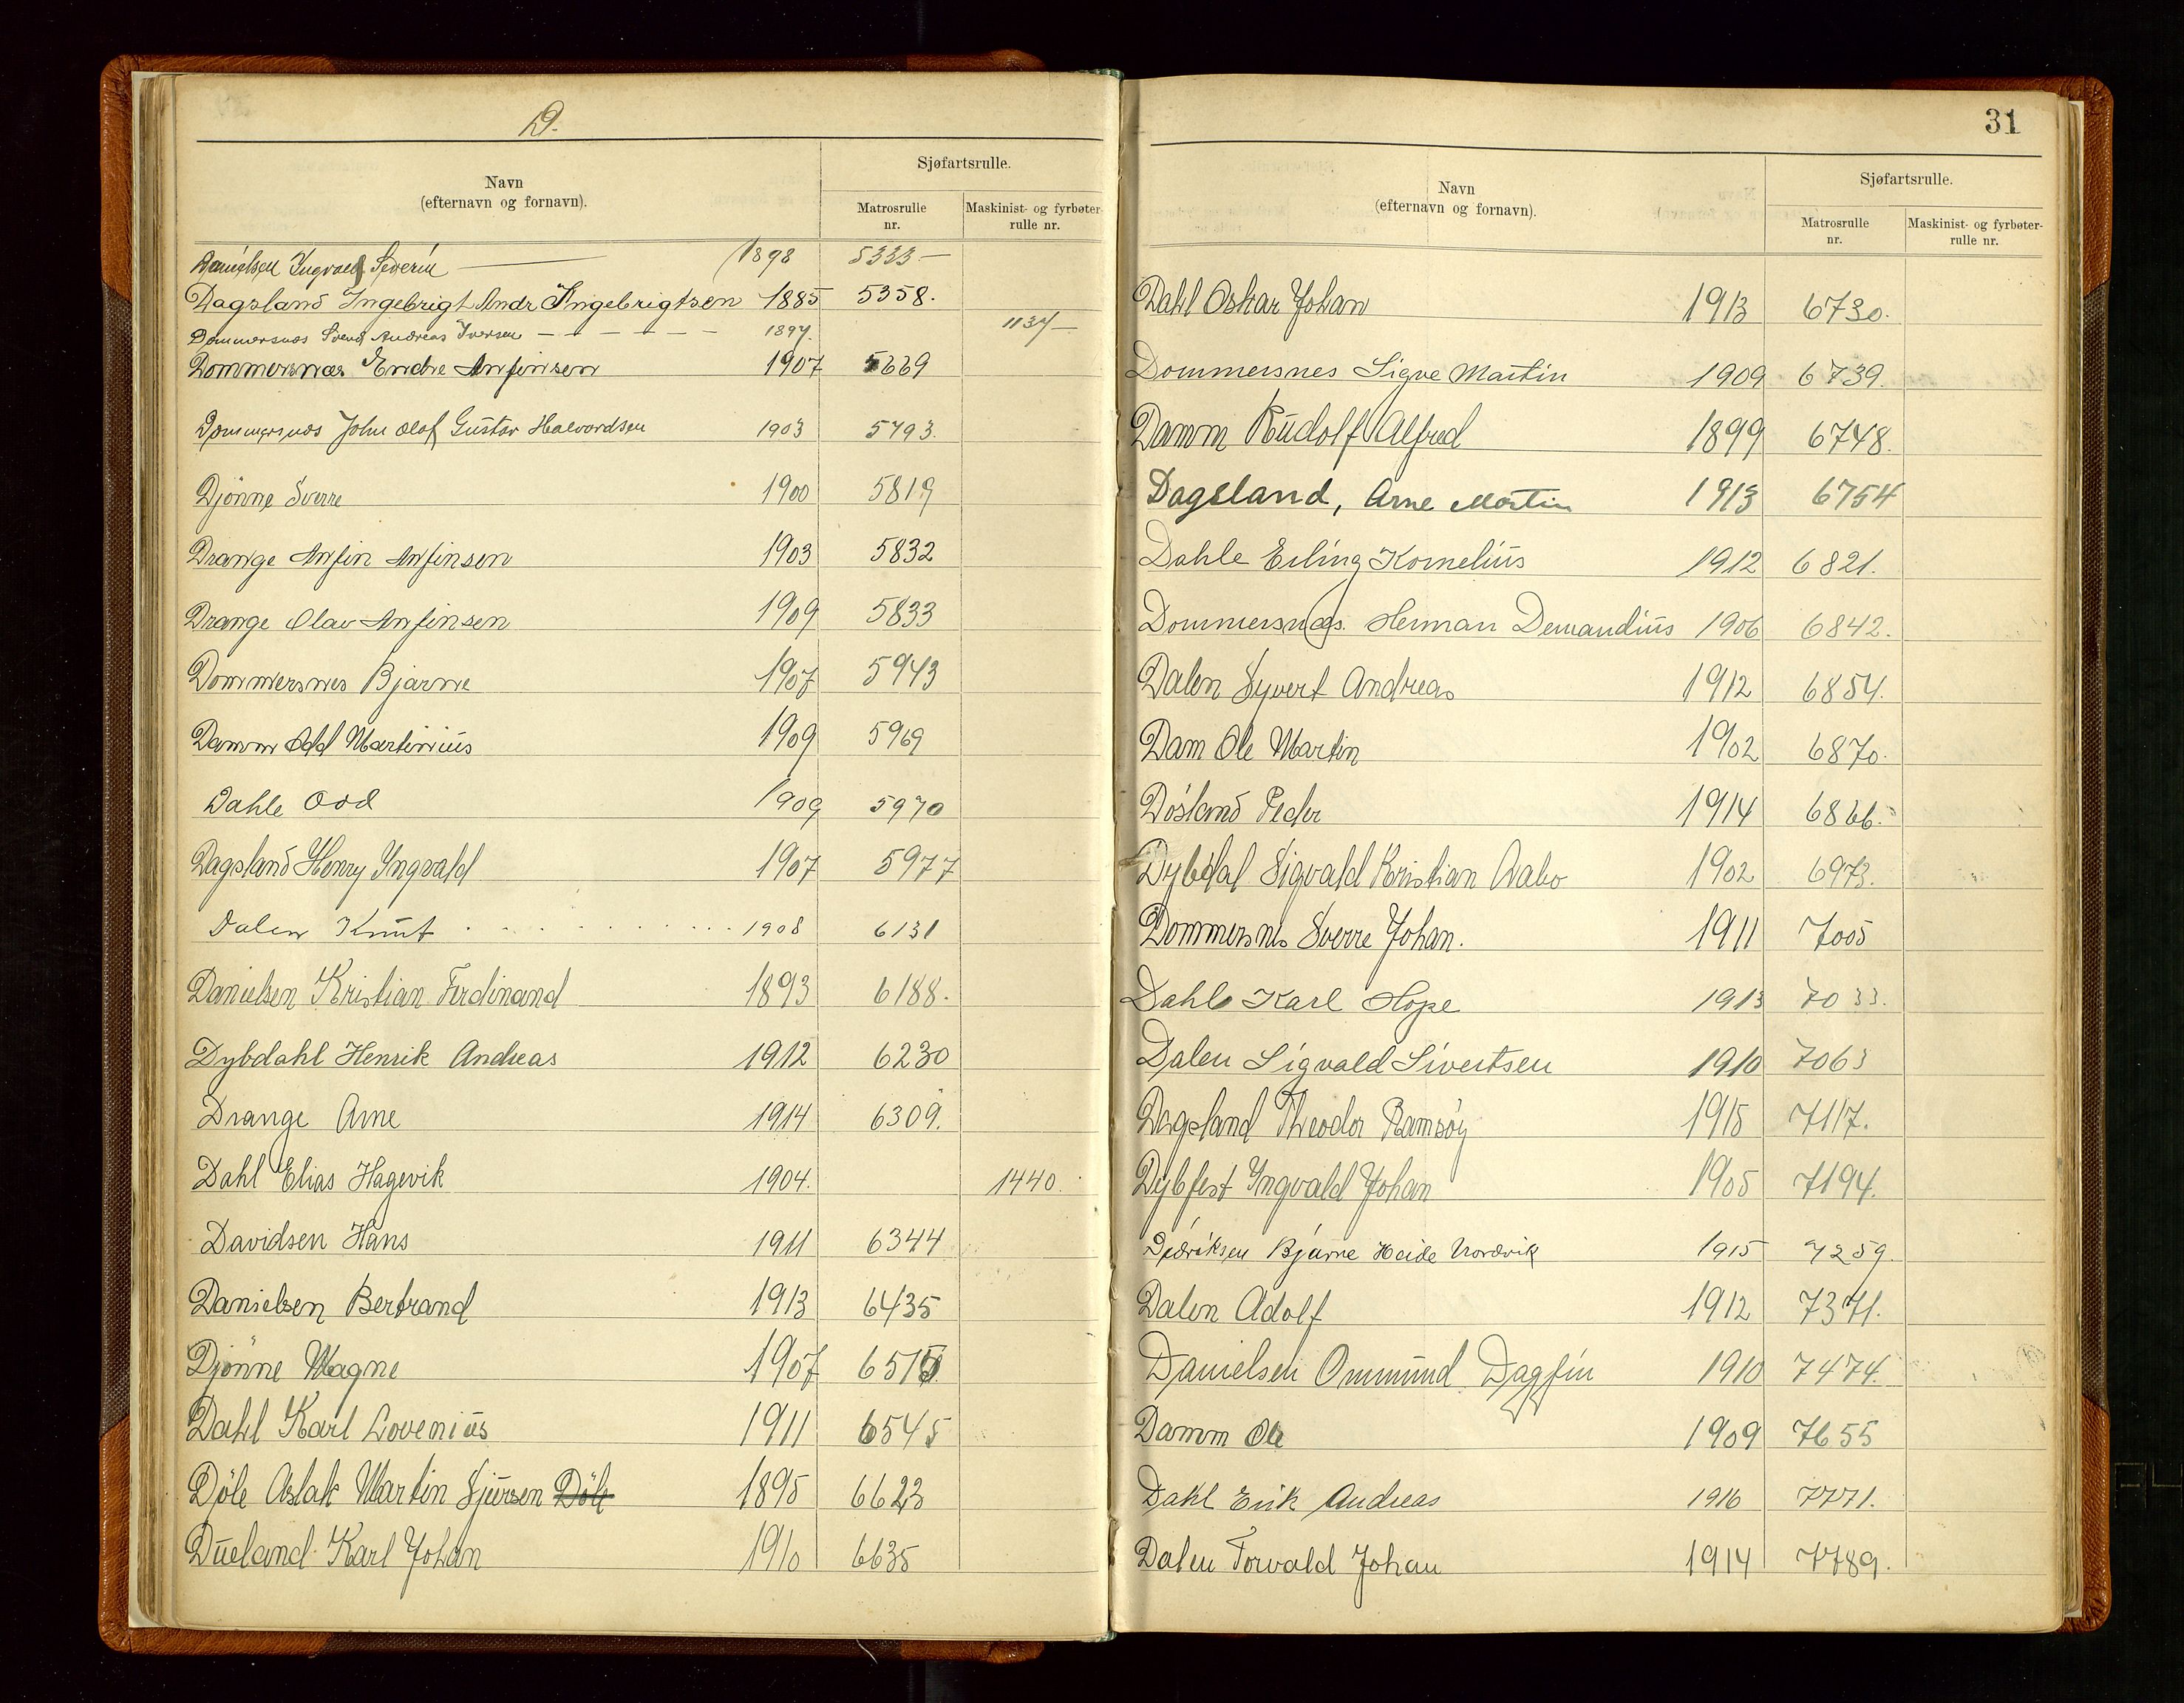 D.
Navn
(efternavn og fornavn).
Sjøfartsrulle.
Matrosrulle nr.
Maskinist- og fyrbøter-rulle nr.
Danielsen Ingvald Severin 1898 5333
Dagsland Ingebrigt Andr Ingebrigtsen 1885 5358.
Dommersnæs Svend Andreas Iversen 1897. 1134
Dommersnæs Endre Anfinsen 1907 5669
Dommersnæs John Olaf Gustav Halvordsen 1903 5793.
Djönne Sverre 1900 5819
Drange Anfin Anfinsen 1903 5832
Drange Olav Anfinsen 1909 5833
Dommersnes Bjarne 1907 5943
Damm Odd Martinius 1909 5969
Dahle Odd 1909 5970
Dagsland Henry Ingvald 1907 5977
Dalen Knut 1908 6131
Danielsen Kristian Ferdinand 1893 6188.
Dybdahl Henrik Andreas 1912 6230
Drange Arne 1914 6309.
Dahl Elias Hagevik 1904. 1440.
Davidsen Hans 1911 6344
Danielsen Bertrand 1913 6435
Djönne Magne 1907
Dahl Karl Lovenius 1911 6545
Döle Aslak Martin Sjursen Döle 1895 6623
Dueland Karl Johan 1910 6635
31
Navn
(efternavn og fornavn).
Sjøfartsrulle.
Matrosrulle nr.
Maskinist- og fyrbøter-rulle nr.
Dahl Oskar Johan 1913 6730.
Dommersnes Sigve Martin 1909 6739.
Damm Rudolf Alfred 1899 6748.
Dagsland, Arne Martin 1913 6754
Dahle Erling Kornelius 1912 6821.
Dommersnæs. Herman Demandius 1906 6842.
Dalen Syvert Andreas 1912 6854.
Dam Ole Martin 1902 6870.
Dösland Peder 1914
Dybdal Sigvald Kristian Aabo 1902 6973.
Dommersnes Sverre Johan. 1911 7005
Dahle Karl Hope 1913 7033.
Dalen Sigvald Sivertsen 1910 7063
Dagsland Theodor Ramsöy 1915 7117.
Dybfest Ingvald Johan 1905 7194.
Djedriksen Bjarne Heide Nordvik 1915 7259.
Dalen Adolf 1912 7371.
Danielsen Ommund Dagfin 1910 7474.
Damm Ole 1909 7655
Dahl Erik Andreas 1916 7771.
Dalen Torvald Johan 1914 7789.